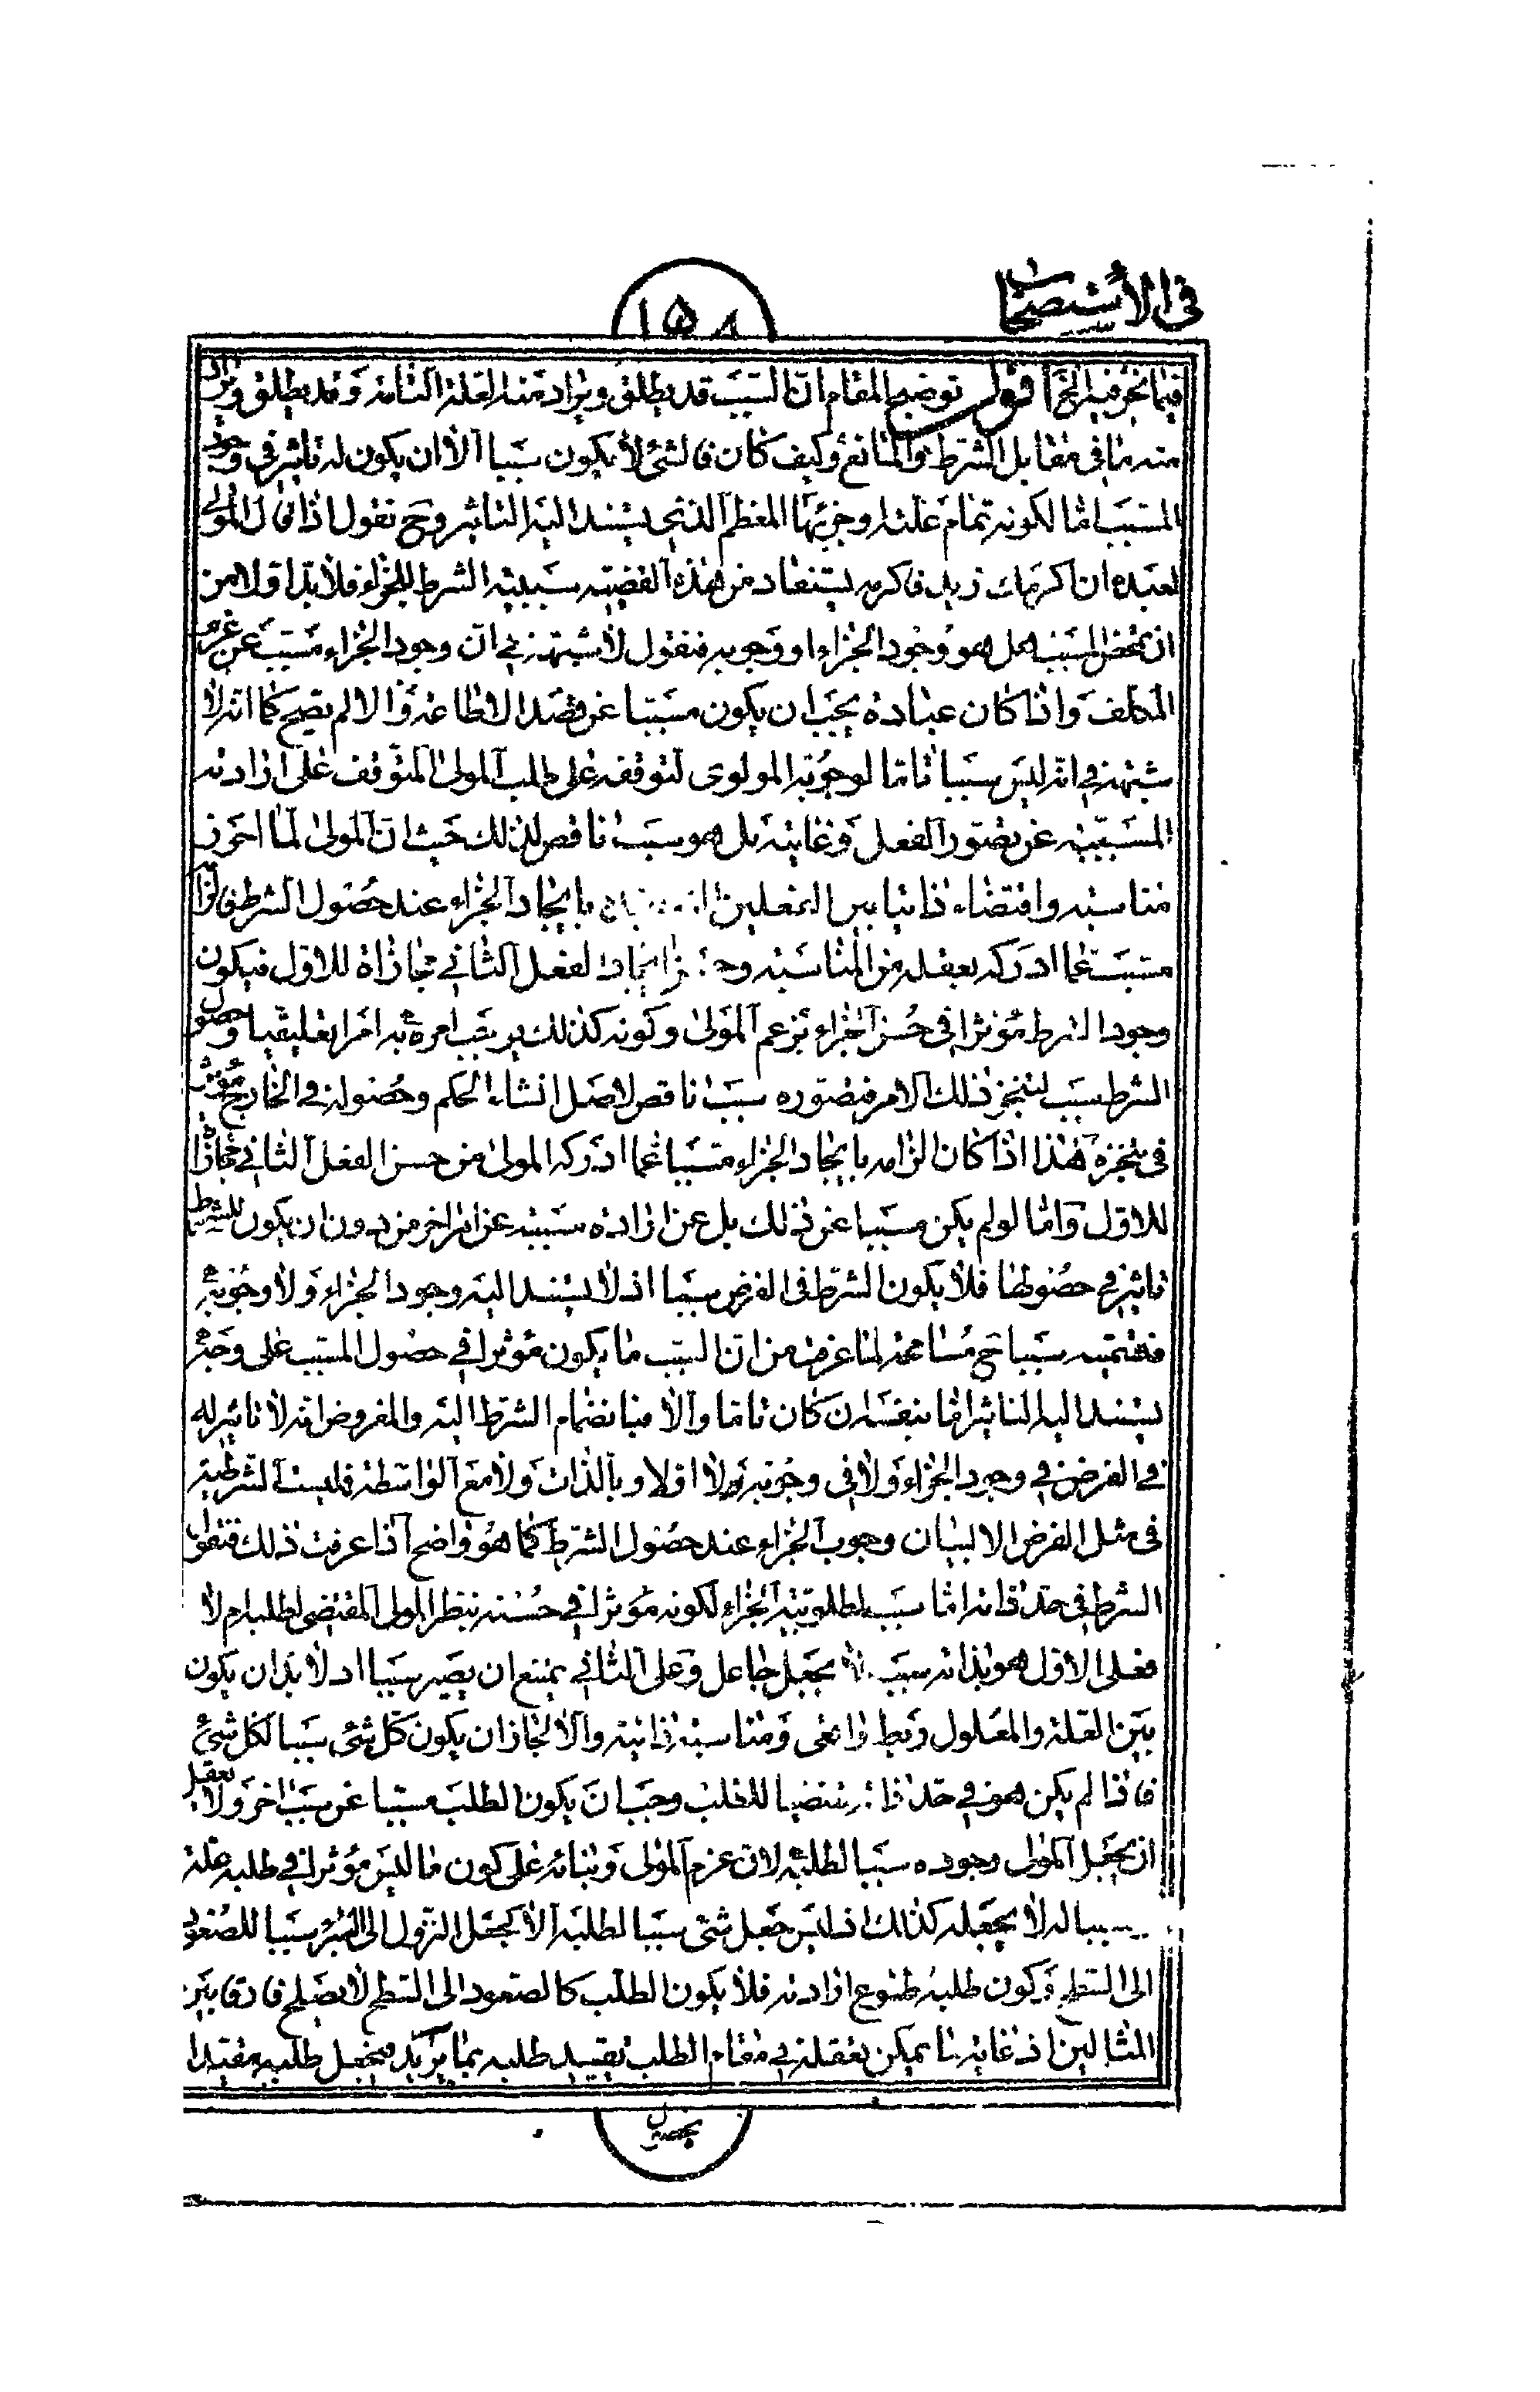 في الاستصحاب
١٥٨
فيما نحن فيه الخ اقول توضيح المقام ان السبب قد يطلق ويراد منه العلة التامة وقد يطلق ويراد
منه ما في مقابل الشرط والمانع وكيف كان فالشئ لا يكون سببا الا ان يكون له تاثير في وجود
المسبب اما لكونه تمام علته او جزئها المعظم الذي يستند اليه التاثير وح نقول اذا قال المولى
لعبده ان اكرمك زيد فاكرمه يستفاد من هذه القضية سببية الشرط للجزاء فلا بد اولا من
ان المسبب هل هو وجود الجزاء او وجوبه فنقول لا شبهة في ان وجود الجزاء مسبب عن عزم
المكلف واذا كان عبادة يجب ان يكون مسببا عن قصد الاطاعة والا لم يصح كما انه لا
شبهة في انه ليس سببا تاما لوجوبه المولوي لتوقفه على طلب المولى المتوقف على ارادته
المسببة عن تصور الفعل وغايته بل هو سبب ناقص لذلك حيث ان المولى لما احرز
مناسبة واقتضاء ذاتيا بين الفعلين بايجاد الجزاء عند حصول الشرط
مسبب عما ادركه بعقله من المناسبة ايجاد الفعل الثاني مجازاة للاول فيكون
وجود الشرط مؤثرا في حسن الجزاء بزعم المولى وكونه كذلك امره به امرا تعليقيا وحصول
الشرط سبب لتنجز ذلك الامر فتصوره سبب ناقص لاصل انشاء الحكم وحصوله في الخارج مؤثر
في تنجزه هذا اذا كان الزامه بايجاد الجزاء مسببا عما ادركه المولى من حسن الفعل الثاني مجازاة
للاول واما لو لم يكن مسببا عن ذلك بل عن ارادة مسببة عن امر اخر من دون ان يكون للشرط
تاثير في حصولها فلا يكون الشرط في الفرض سببا اذ لا يستند اليه وجود الجزاء ولا وجوبه
فتسميته سببا ح مسامحة لما عرفت من ان السبب ما يكون مؤثرا في حصول المسبب على وجه
يستند اليه التاثير اما بنفسه ان كان تاما والا فبانضمام الشرط اليه والمفروض انه لا تاثير له
في الفرض في وجود الجزاء ولا في وجوبه لا اولا وبالذات ولا مع الواسطة فليست الشرطية
في مثل الفرض الا لبيان وجوب الجزاء عند حصول الشرط كما هو واضح اذا عرفت ذلك فنقول
الشرط في حد ذاته اما سبب لمطلوبية الجزاء لكونه مؤثرا في حسنه بنظر المولى المقتضي لطلبه ام لا
فعلى الاول هو بذاته سبب لا بجعل جاعل وعلى الثاني يمتنع ان يصير سببا اذ لا بد ان يكون
بين العلة والمعلول ربط واقعي ومناسبة ذاتية والا لجاز ان يكون كل شئ سببا لكل شئ
فاذا لم يكن هو في حد ذاته مقتضيا للطلب وجب ان يكون الطلب مسببا عن سبب اخر ولا يعقل
ان يجعل المولى وجوده سببا لطلبه لان عزم المولى وبنائه على كون ما ليس مؤثرا في طلبه علة
سببا له لا يجعله كذلك اذ ليس جعل شئ سببا لطلبه الا كجعل النزول الى البئر سببا للصعود
الى السطح وكون طلبه طوع ارادته فلا يكون الطلب كالصعود الى السطح لا يصلح فارقا بين
المثالين اذ غاية ما يمكن تعقله في مقام الطلب تقييد طلبه بما يريد فيجعل طلبه مقيدا
بحصول